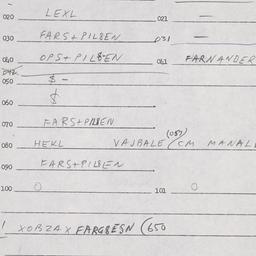 020 LEXL 021 —
030 FARS+PILSEN 031 —
040 OPS+PILSEN 041 FARNANDER
042
050 $ -
060 $
070 FARS+PILSEN
(087)
080 HEKL VAJBALE / CM MANAL
090 FARS+PILSEN
100 0 101 0
XOBZAX FARGBESN (650